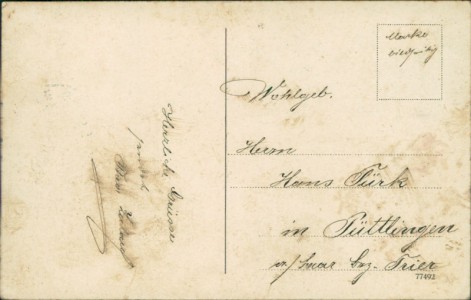 Herzliche Grüsse
sendet
Marke
Wohlgeb.
Herrn
Hans Türk
in Püttlingen
a/Saar Bez. Trier
77492